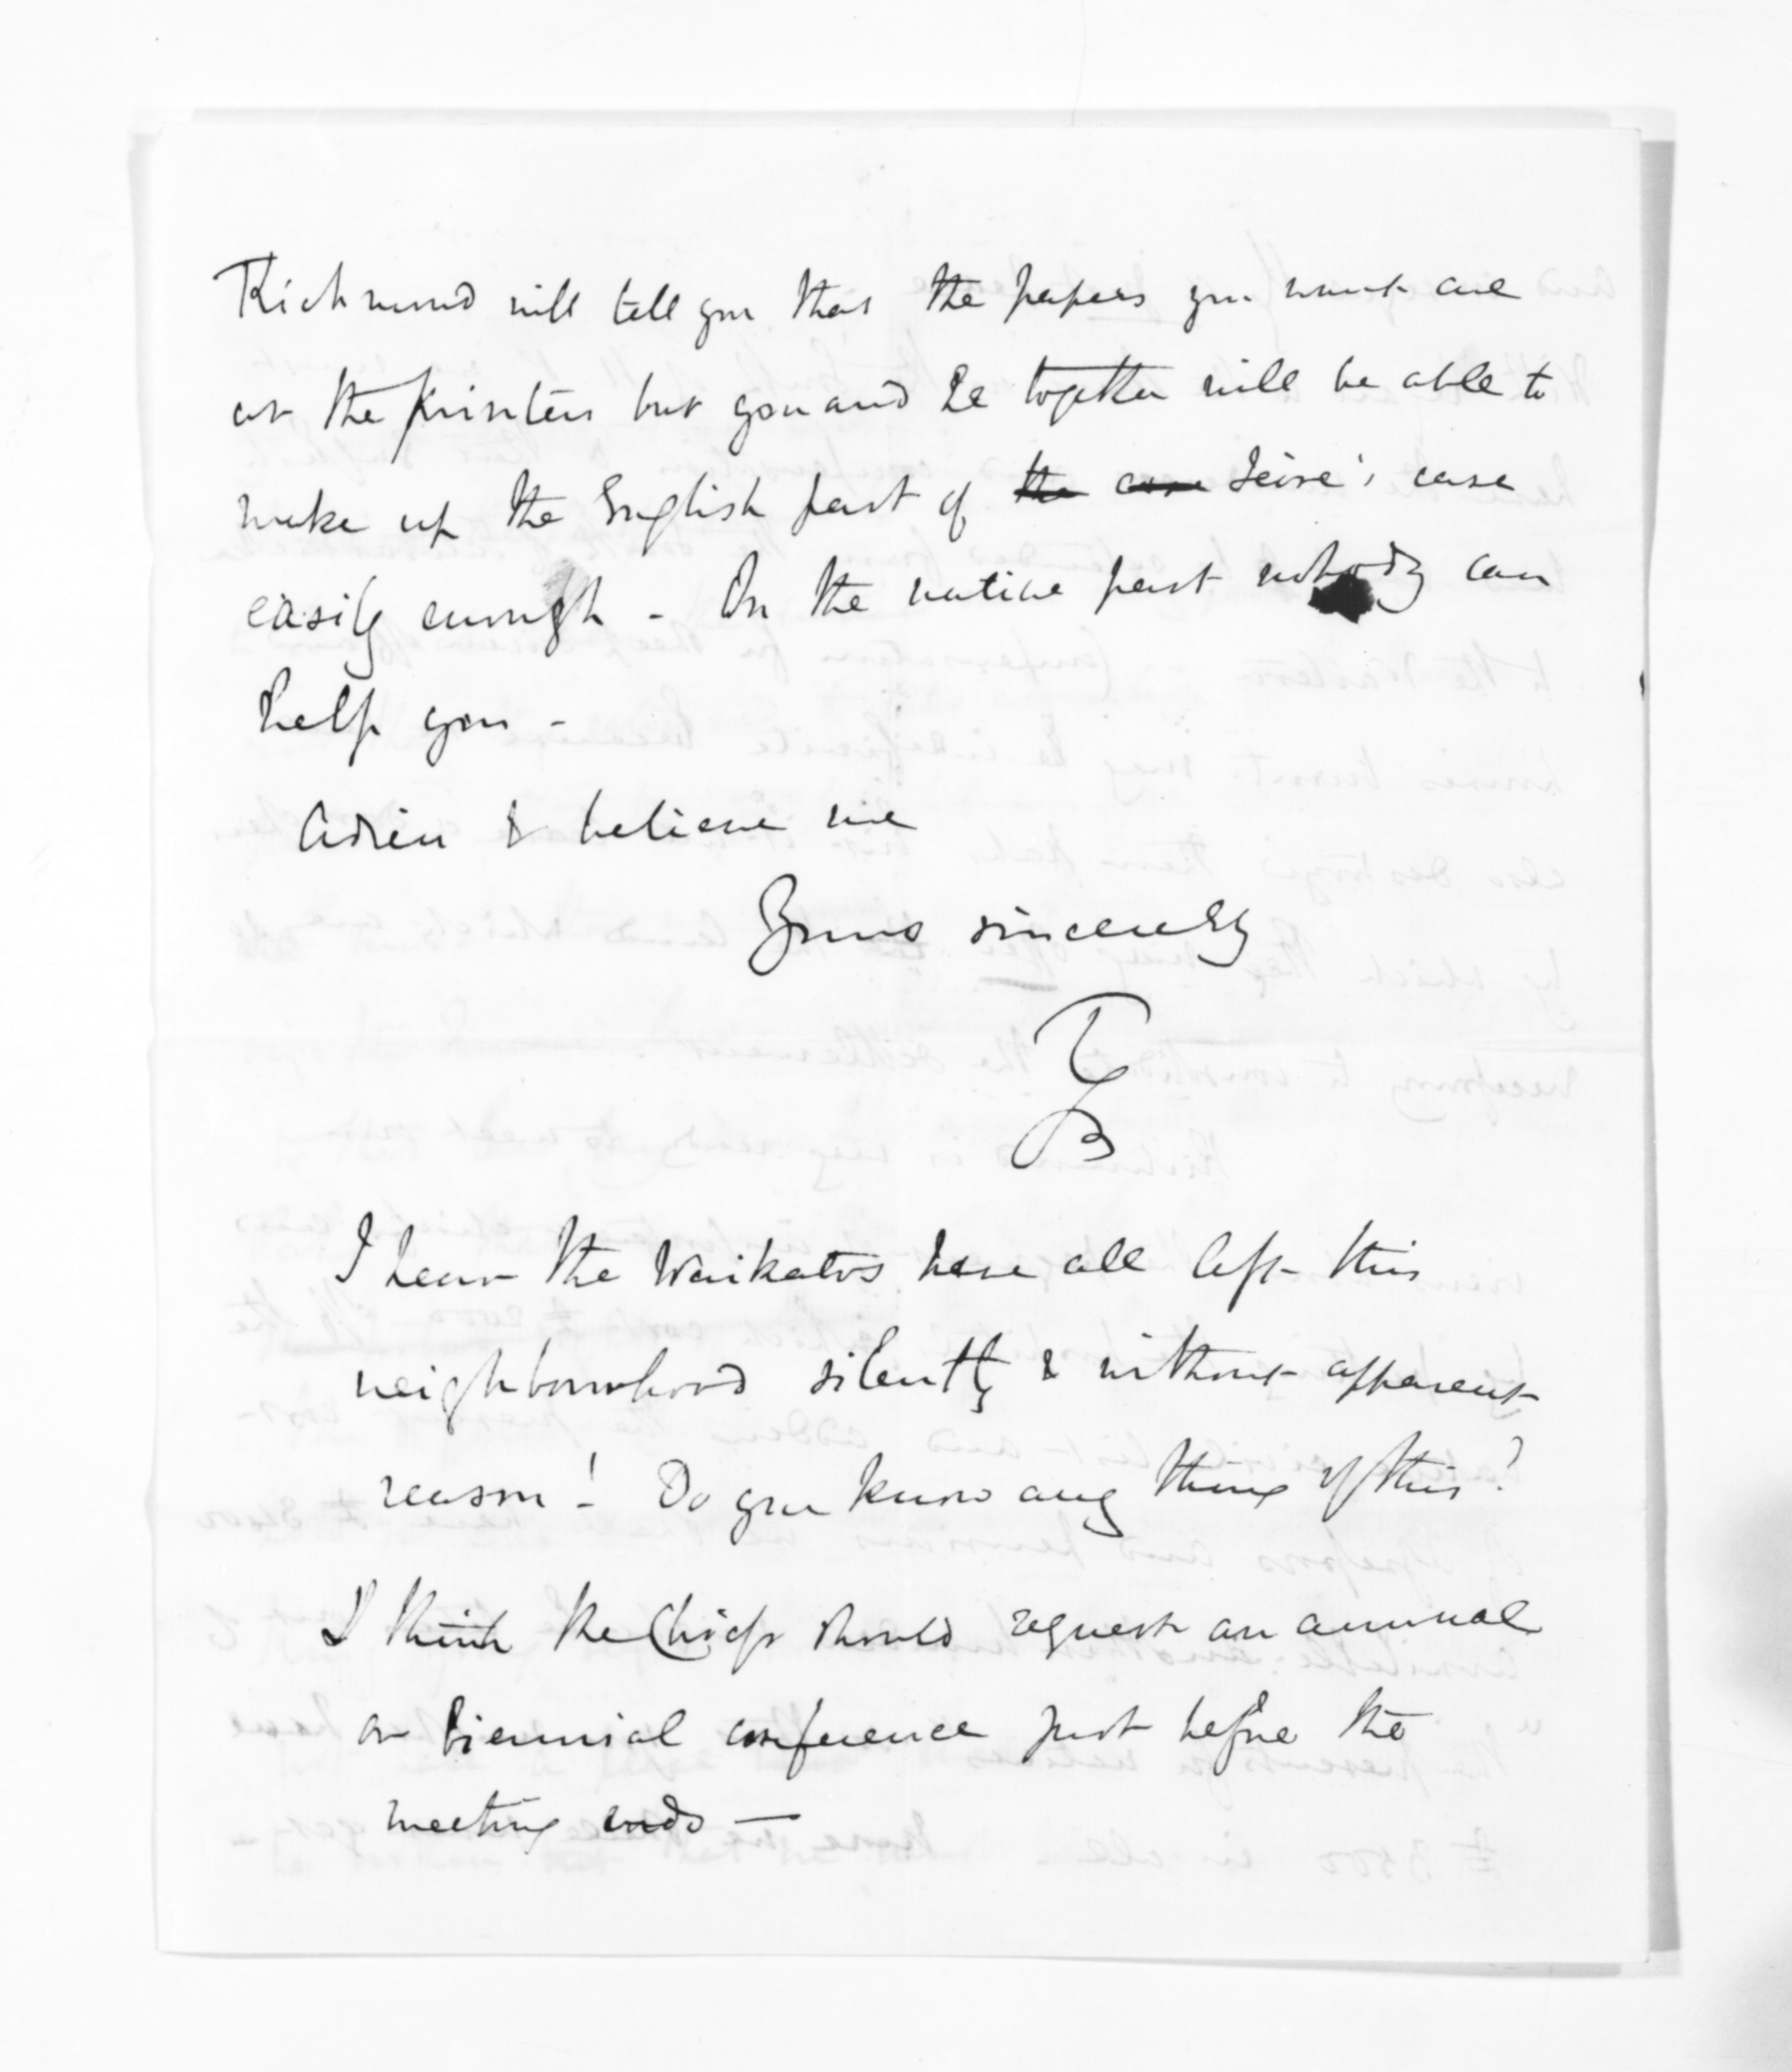 Richmond will tell you that the papers you want are
at the printers but you and he together will be able to
make up the English part of the case Teira's case
easily enough - On the native part nobody can
help you -
Adieu & believe me
Yours sincerely
TGB
I hear the Waikatos have all left this
neighbourhood silently & without apparent
reason! Do you know any thing of this?
I think the Chiefs should request an annual
or biennial conference just before the
meeting ends —